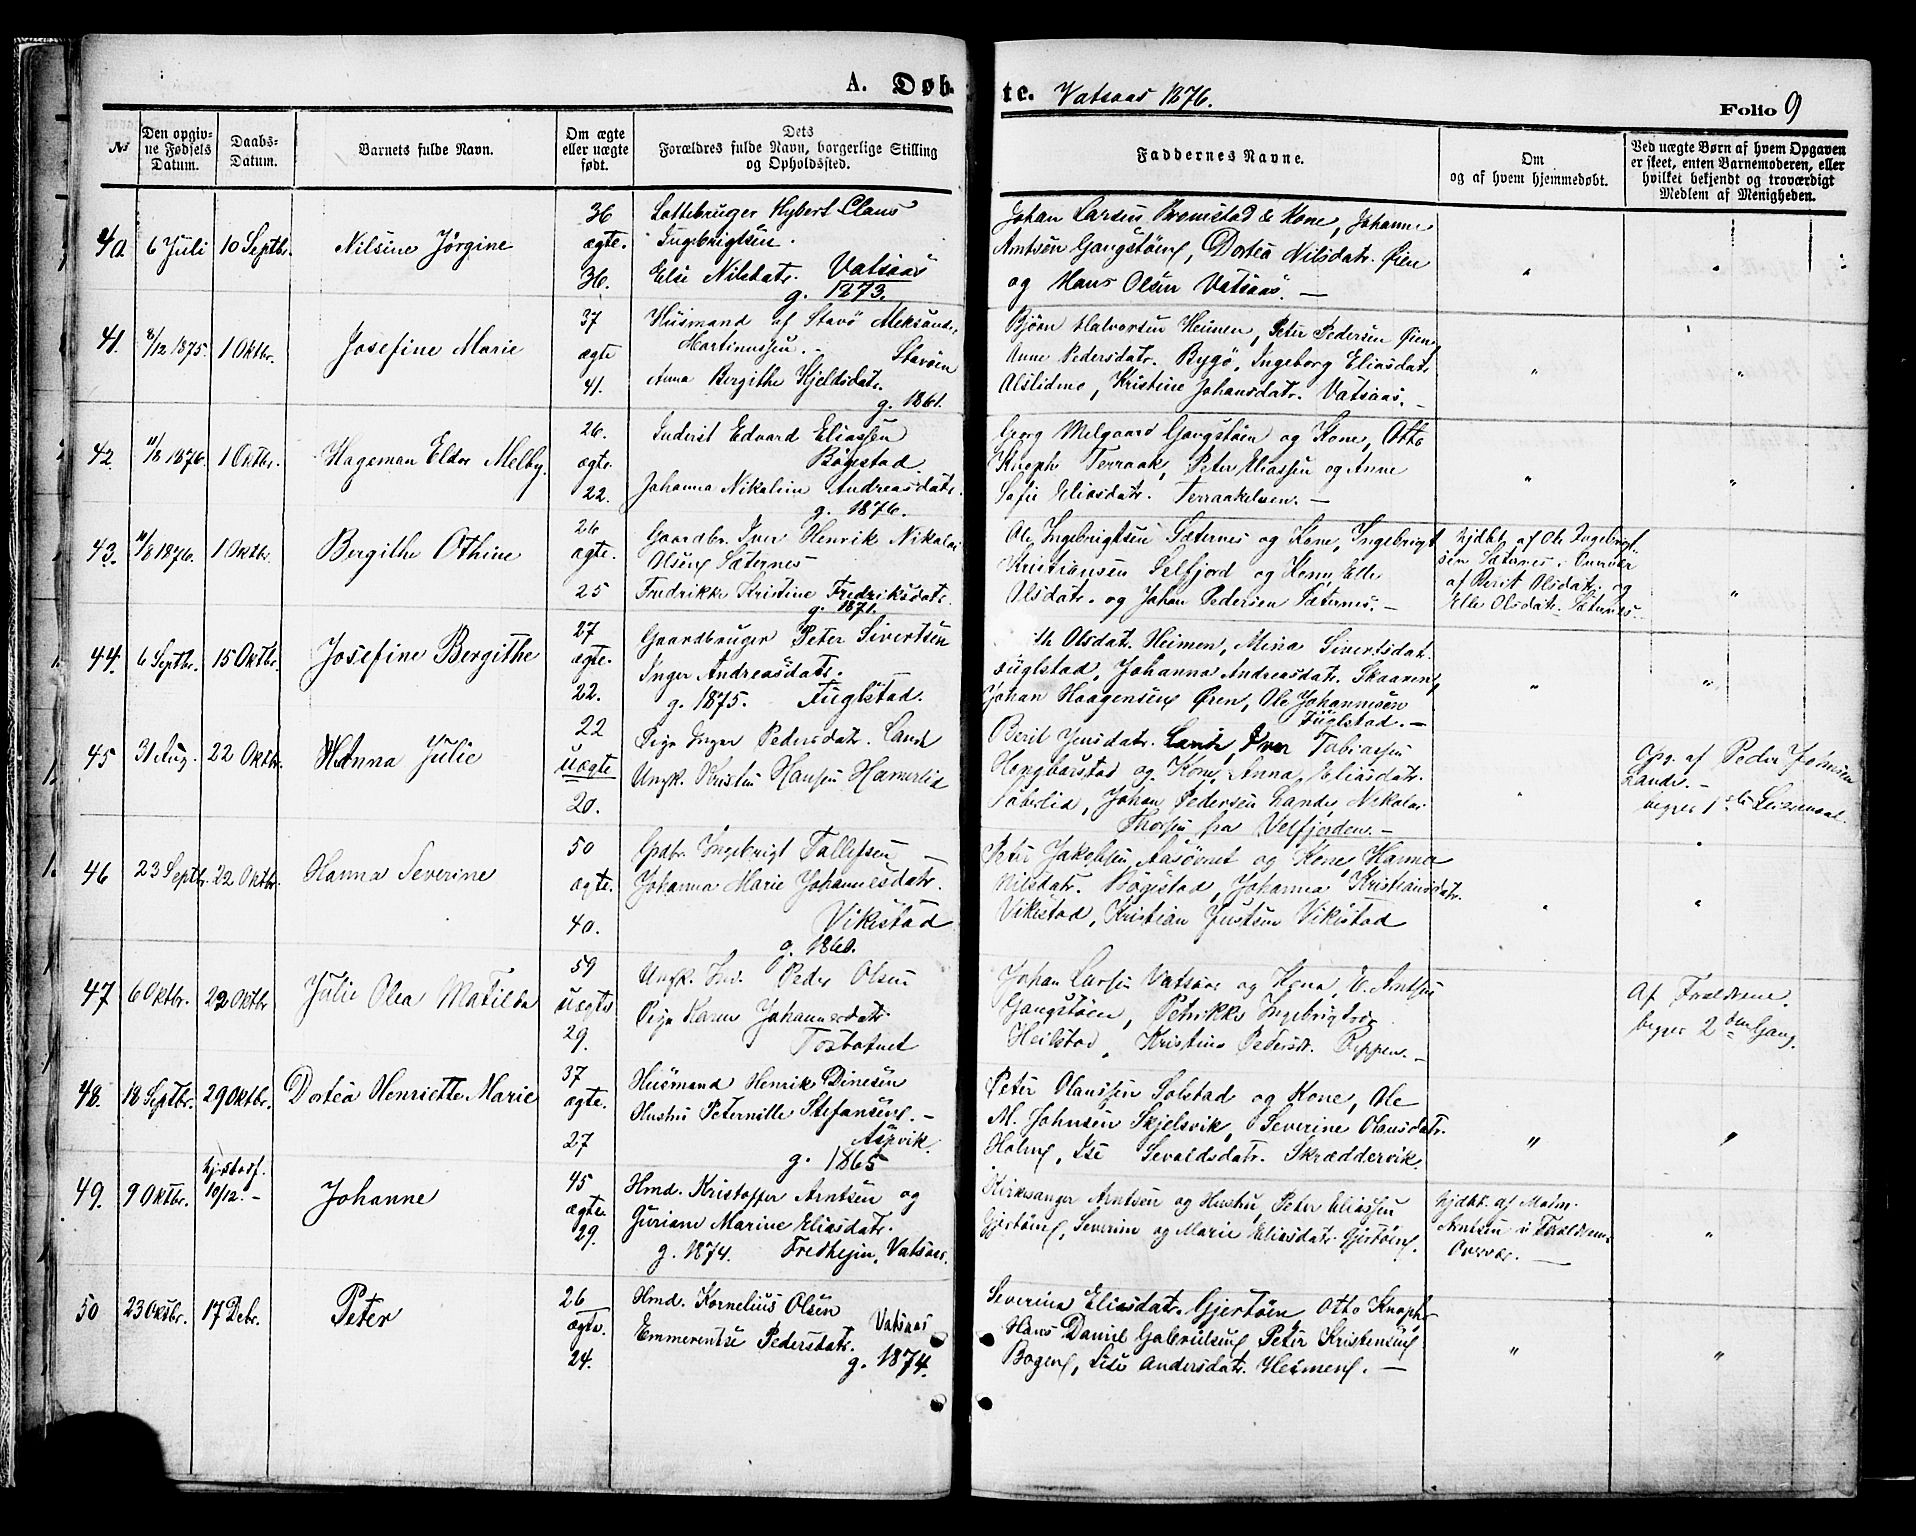 A. Døbte. Vatsaas 1876.
Folio 9
No
Den opgivne Fødsels Datum.
Daabs-Datum.
Barnets fulde Navn.
Om ægte eller uægte født.
Dets Forældres fulde Navn, borgerlige Stilling og Opholdssted.
Faddernes Navne.
Om og af hvem hjemmedøbt.
Ved uægte Børn af hvem Opgaven er skeet, enten Barnemoderen, eller hvilket bekjendt og troværdigt Medlem af Menigheden.
40. 6 Juli 10 Septbr. Nilsine Jørgine
36 ægte. 36.
Hybert Claus
Ingebrigtsen.
Else Nilsdatr. Vatsaas
g. 1873.
Johan Larsen Bremstad & Kone, Johanne
Arntsen Gangstøen, Dortea Nilsdatr. Øien
og Hans Olsen Vatsaas. —
41. 8/12 1875. 1 Oktbr. Josefine Marie
37 ægte 41.
Husmand af Stavø Aleksander
Martinussen. Stavøen
Anna Bergithe Kjeldsdatr.
g. 1861.
Bjørn Halvorsen Heimen, Peter Pedersen Øien,
Anne Pedersdatr. Bygø, Ingeborg Eliasdatr.
Alslidmo, Kristine Johansdatr. Vatsaas. —
42. 11/8 1876. 1 Oktbr. Hageman Eldor Melby.
26. ægte. 22.
Inderst Edvard Eliassen
Bøgestad.
Johanna Nikoline Andreasdatr.
g. 1876.
Georg Melgaard Gangstøen og Kone, Otto
Knoph Terraak, Peter Eliassen og Anne
Sofie Eliasdatr. Terraakelven. —
43. 11/8 1876. 1 Oktbr. Bergithe Othine
26 ægte. 25
Gaardbr. Iver Henrik Nikolai
Olsen Sæternes
Fredrikke Kristine Fredriksdatr.
g. 1871.
Ole Ingebrigtsen Sæternes og Kone, Ingebrigt
Kristiansen Selfjord og Kone, Elle
Olsdatr. og Johan Pedersen Sæternes. —
hjdbt. af Ole Ingebrigt-
sen Sæternes i Overvær
af Berit Olsdatr. og
Elle Olsdatr. Sæternes.
44. 6 Septbr. 15 Oktbr. Josefine Bergithe
27 ægte. 22.
Gaardbruger Peter Sivertsen
Inger Andreasdatr.
g. 1875. Fuglstad.
Olsdat. Heimen, Mina Sivertsdat.
Fuglstad, Johanna Andreasdatr. Skaaren,
Johan Haagensen Øren, Ole Johannesen
Fuglstad. —
45 31 Aug. 22 Oktbr. Hanna Julie
22 uægte 20.
Pige Inger Pedersdatr. Lande
Ungk. Kristen Hansen Hamerlid
Berit Jensdatr. Lande, Iver Tobiassen
Hongbarstad og Kone, Anna Eliasdatr.
Johan Pedersen Lande, Nikolai
Thorsen fra Velfjorden. —
Opg. af Peder Jønsen
Lande. —
begges 1ste Leiermaal.
46 23 Septbr. 22 Oktbr. Hanna Severine
50 ægte. 40.
Grdbr. Ingebrigt Tollefsen
Johanna Marie Johannesdatr.
Vikestad
g. 1860.
Peter Jakobsen Aasøvnet og Kone, Hanna
Nilsdatr. Bøgestad, Johanna Kristiansdatr.
Vikestad, Kristian Justsen Vikestad
47 6 Oktbr. 22 Oktbr Julie Olea Matilda
59 uægte 29.
Ungk. Ind. Peder Olsen
Pige Karen Johannesdatr.
Tosbotnet
Johan Larsen Vatsaas og Kone, E. Arntsen
Gangstøen, Petrikke Ingebrigtsdr.
Heilstad, Kristine Pedersdr. Reppen. —
Af Forældrene.
begges 2den Gang.
48. 18 Septbr. 29 Oktbr. Dortea Henriette Marie
37 ægte. 27
Husmand Henrik Dinesen
Hustru Peternille Stefansen. —
Aspvik.
g. 1865
Peter Olaussen Solstad og Kone, Ole
M. Johnsen Skjelsvik, Severine Olausdatr.
Holm, Ise Sevaldsdatr. Skræddervik.
49. 9 Oktbr. 10/12. — Johanne
45 ægte. 29.
Hmd. Kristoffer Arntsen og
Guriane Marine Eliasdatr.
g. 1874. Fredheim, Vatsaas.
Kirkesanger Arntsen og Hustru, Peter Eliassen
Gjertøen, Severine og Marie Eliasdatr. Gjertøen.
hjdbt. af Malm.
Arntsen i Forældrenes
Overvær. —
50 23 Oktbr. 17 Debr. Peter
26 ægte. 24.
Hmd. Kornelius Olsen Vatsaas
Emmerentse Pedersdatr.
g. 1874.
Severine Eliasdatr. Gjertøen, Otto Knoph,
Hans Daniel Gabrielsen, Peter Kristensen
Bogen, Lise Andersdatr. Heimen. —